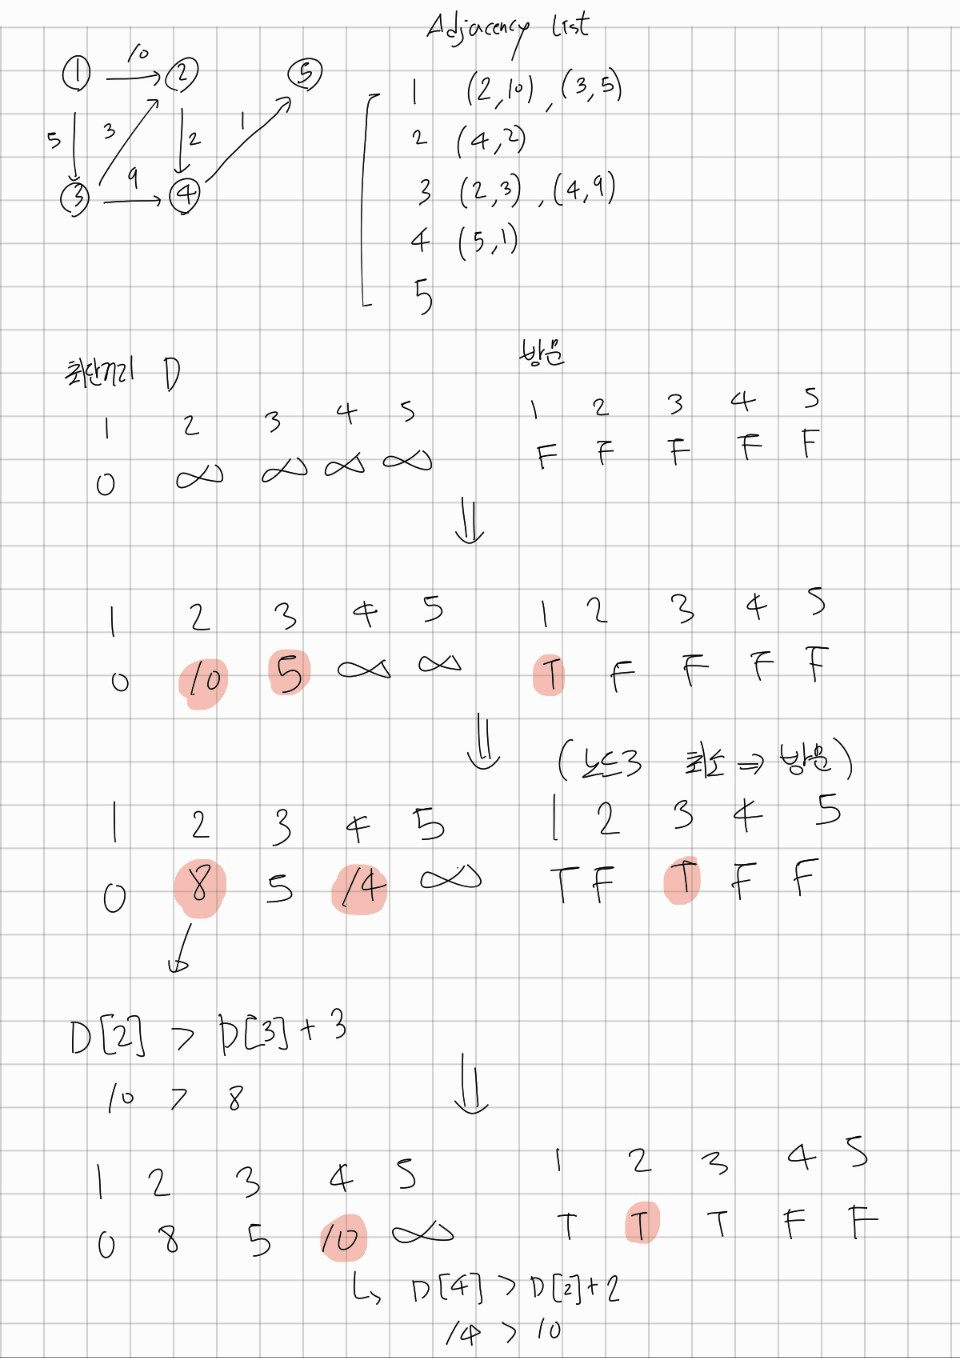 Adjacency list
① 10 ② ⑤
5 3 2 1
③ 9 ④
1 (2,10), (3,5)
2 (4,2)
3 (2,3), (4,9)
4 (5,1)
5
최단거리 D
1 2 3 4 5
0 ∞ ∞ ∞ ∞
방문
1 2 3 4 5
F F F F F
⇓
1 2 3 4 5
0 10 5 ∞ ∞
1 2 3 4 5
T F F F F
⇓
(노드3 최소 ⇒ 방문)
1 2 3 4 5
0 8 5 14 ∞
1 2 3 4 5
T F T F F
D[2] > D[3] + 3
10 > 8
⇓
1 2 3 4 5
0 8 5 10 ∞
1 2 3 4 5
T T T F F
↳ D[4] > D[2] + 2
14 > 10